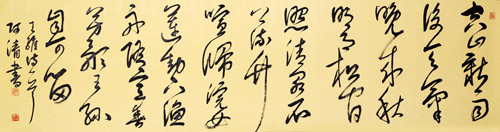 空山新雨
後天氣
晚來秋
明月松間
照清泉石
上流竹
喧歸浣女
蓮動下漁
舟随意春
芳歇王孫
自可留
王維詩一首
清書